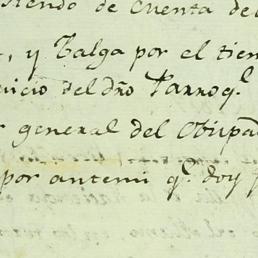 iendo de Cuenta de
, y Valga por el tien
uicio del dño Parroq.l
general del Obispa
por antemi q.e doy f